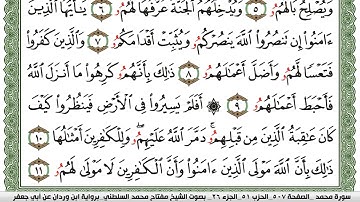 وَيُصْلِحُ بَالَهُمُۥ ٥ وَيُدْخِلُهُمُ ٱلْجَنَّةَ عَرَّفَهَا لَهُمُۥ ٦ يَٰٓأَيُّهَا ٱلَّذِينَ
ءَامَنُوٓاْ إِن تَنصُرُواْ ٱللَّهَ يَنصُرْكُمُۥ وَيُثَبِّتْ أَقْدَامَكُمُۥ ٧ وَٱلَّذِينَ كَفَرُواْ
فَتَعْسًا لَّهُمُۥ وَأَضَلَّ أَعْمَٰلَهُمُۥ ٨ ذَٰلِكَ بِأَنَّهُمُۥ كَرِهُواْ مَآ أَنزَلَ ٱللَّهُ
فَأَحْبَطَ أَعْمَٰلَهُمُۥ ٩ ۞ أَفَلَمْ يَسِيرُواْ فِي ٱلْأَرْضِ فَيَنظُرُواْ كَيْفَ
كَانَ عَٰقِبَةُ ٱلَّذِينَ مِن قَبْلِهِمُۥ دَمَّرَ ٱللَّهُ عَلَيْهِمُۥ وَلِلْكَٰفِرِينَ أَمْثَٰلُهَا ١٠
ذَٰلِكَ بِأَنَّ ٱللَّهَ مَوْلَى ٱلَّذِينَ ءَامَنُواْ وَأَنَّ ٱلْكَٰفِرِينَ لَا مَوْلَىٰ لَهُمُۥ ١١
سورة محمد _الصفحة ٥٠٧_الحزب ٥١_الجزء ٢٦_ بصوت الشيخ مفتاح محمد السلطني_برواية ابن وردان عن أبي جعفر